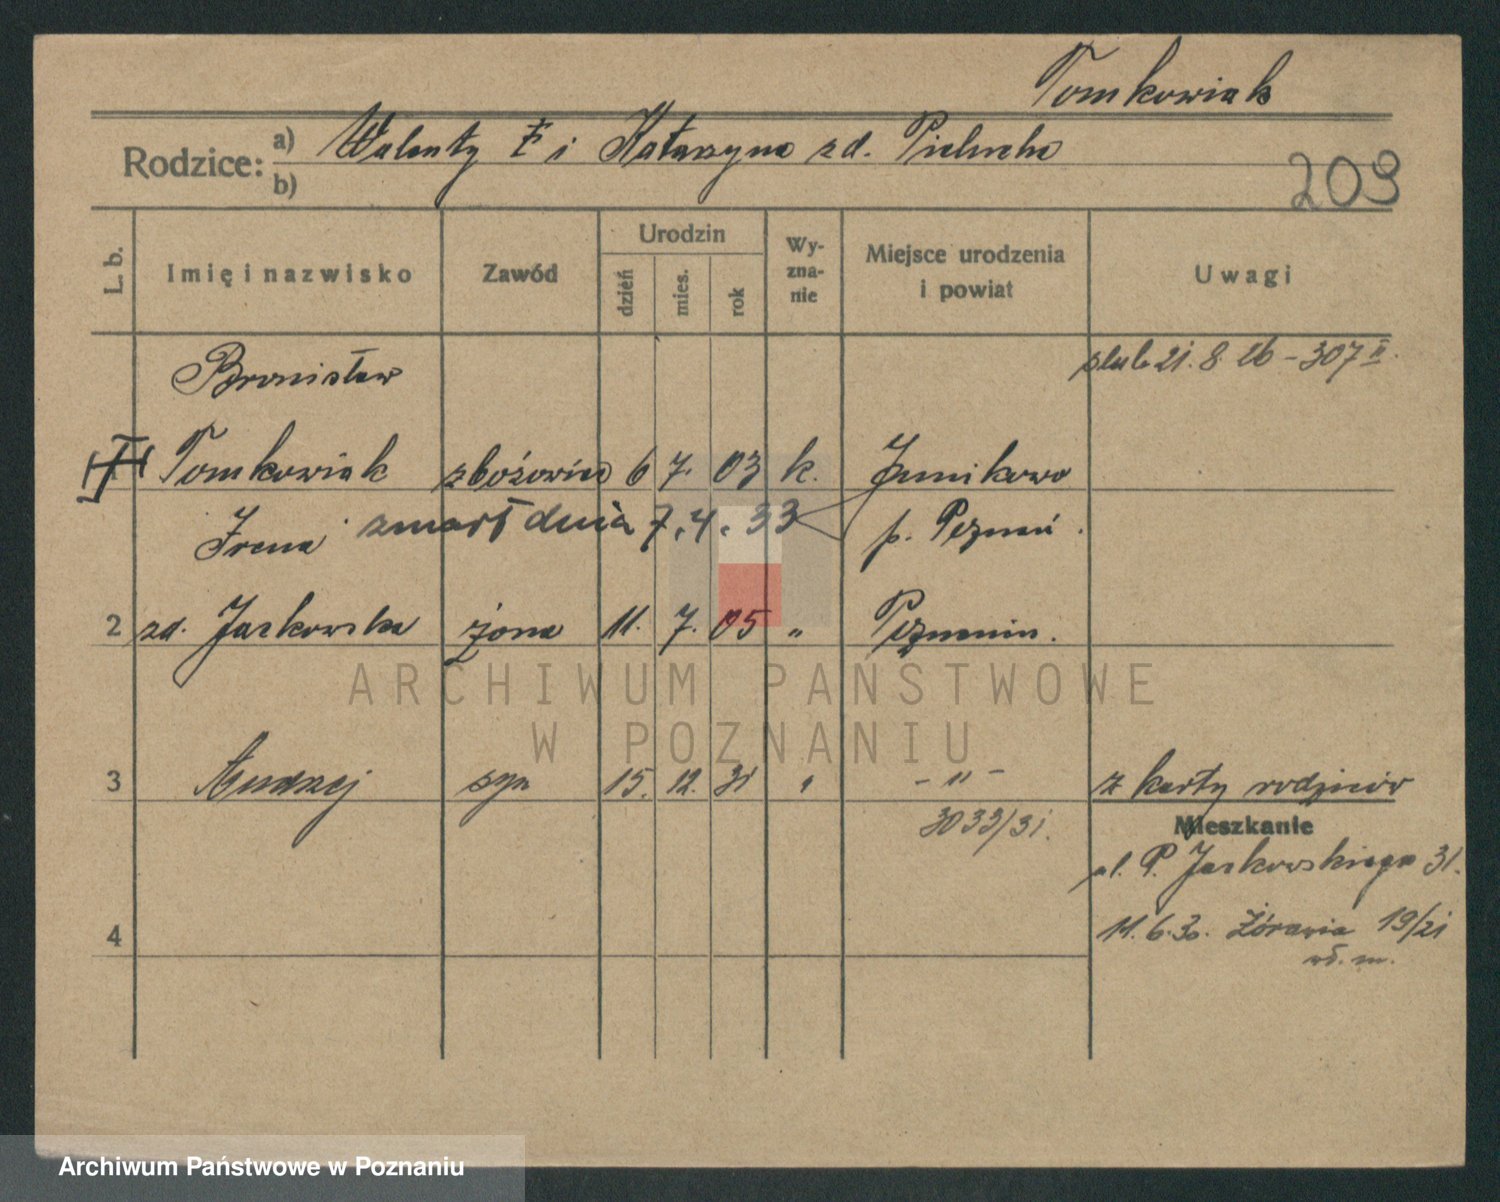 Tomkowiak
Rodzice: a) Walenty † i Katarzyna zd. Pielucha
b)
209
L. b. Imię i nazwisko Zawód Urodzin dzień mies. rok Wyznanie Miejsce urodzenia i powiat Uwagi
Bronisław ślub 21. 8. 26 – 307 II.
Tomkowiak zbożowiec 6 7. 03 k. Junikowo
Irena zmarł dnia 7.4.33 p. Poznań.
2 zd. Jaskowska żona 11. 7. 05 „ Poznań.
ARCHIWUM PAŃSTWOWE
W POZNANIU
3 Andrzej syn 15. 12. 31 „ – „ – z karty rodziców
3033/31. Mieszkanie
ul. P. Jaskowskiego 31.
4 11.6.30. Żórawia 19/21
wł. m.
Archiwum Państwowe w Poznaniu